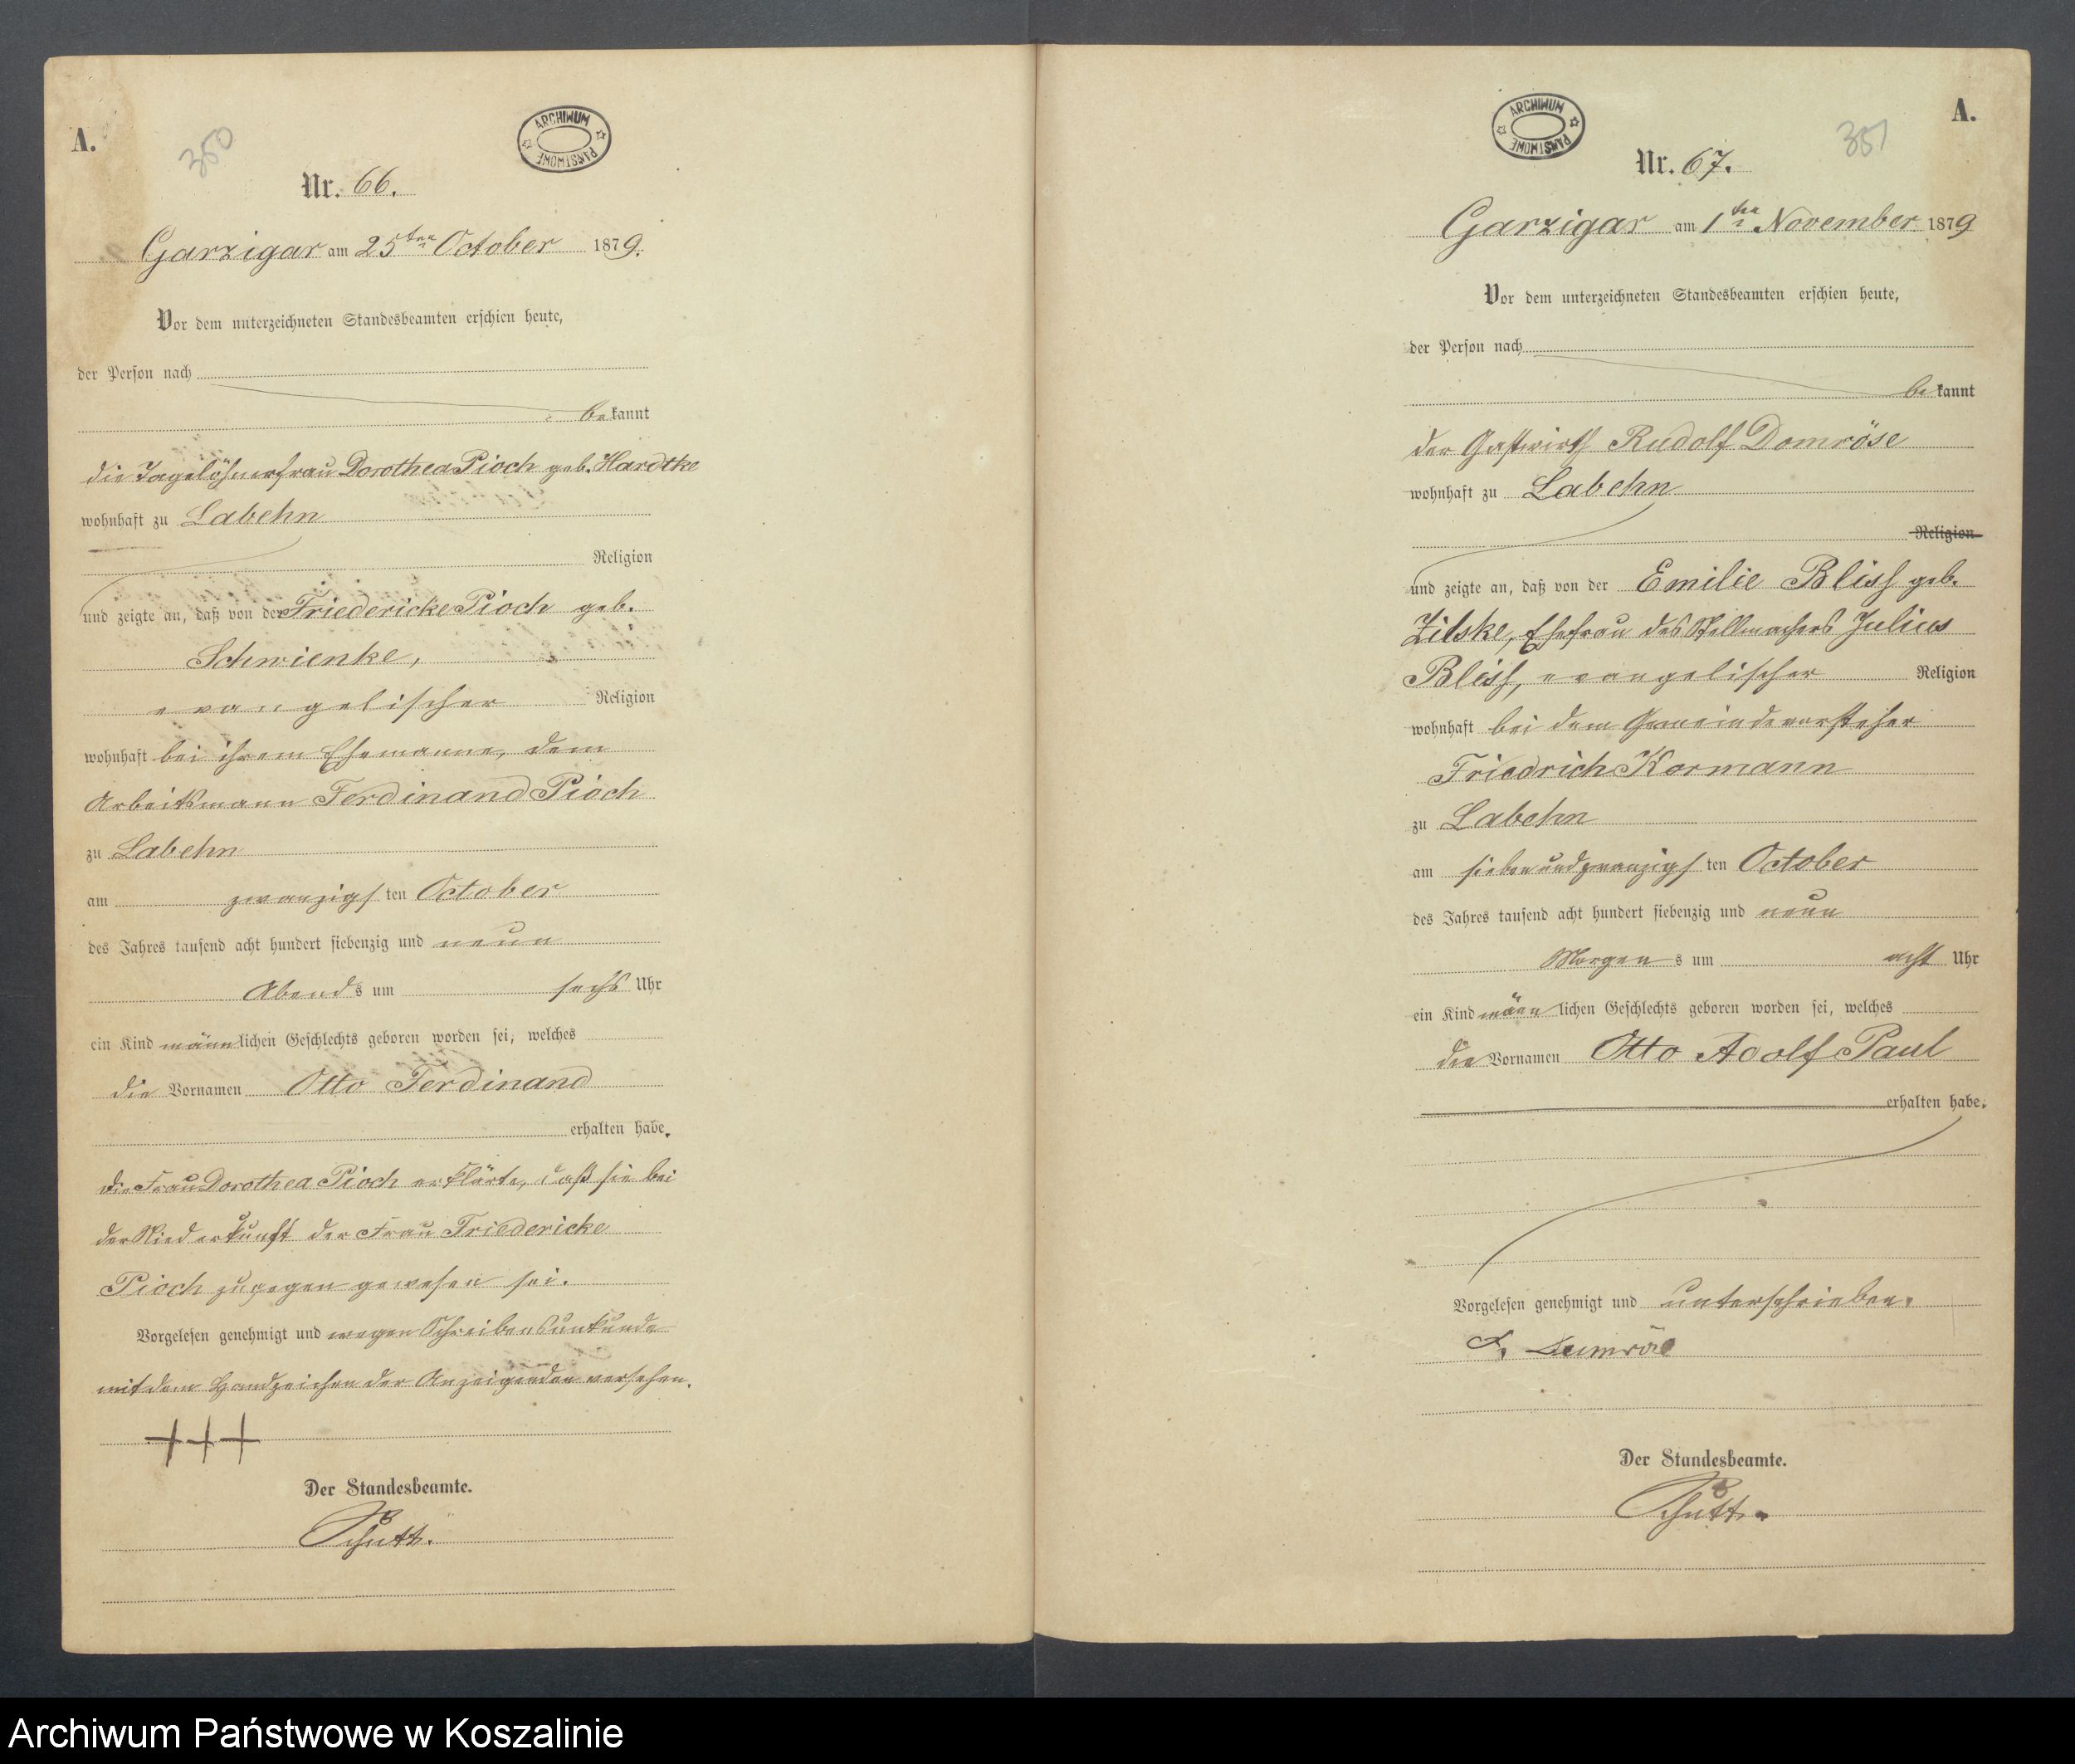 A.
350
ARCHIWUM PAŃSTWOWE
Nr. 66.
Garzigar am 25ten October 1879.
Vor dem unterzeichneten Standesbeamten erschien heute,
der Person nach
bekannt
die Tagelöhnerfrau Dorothea Pioch geb. Hardtke
wohnhaft zu Labehn
Religion
und zeigte an, daß von der Friedericke Pioch geb.
Schwienke,
evangelischer Religion
wohnhaft bei ihrem Ehemanne, dem
Arbeitsmann Ferdinand Pioch
zu Labehn
am zwanzigsten October
des Jahres tausend acht hundert siebenzig und neun
Abends um sechs Uhr
ein Kind männlichen Geschlechts geboren worden sei, welches
die Vornamen Otto Ferdinand
erhalten habe.
die Frau Dorothea Pioch erklärte, daß sie bei
der Niederkunft der Frau Friedericke
Pioch zugegen gewesen sei.
Vorgelesen genehmigt und wegen Schreibensunkunde
mit dem Handzeichen der Anzeigenden versehen.
+++
Der Standesbeamte.
Schütt.
A.
351
ARCHIWUM PAŃSTWOWE
Nr. 67.
Garzigar am 1ten November 1879
Vor dem unterzeichneten Standesbeamten erschien heute,
der Person nach
bekannt
der Gastwirth Rudolf Domröse
wohnhaft zu Labehn
Religion
und zeigte an, daß von der Emilie Bliss geb.
Zilske, Ehefrau des Stellmachers Julius
Bliss, evangelischer Religion
wohnhaft bei dem Gemeindevorsteher
Friedrich Kormann
zu Labehn
am siebenundzwanzigsten October
des Jahres tausend acht hundert siebenzig und neun
Morgens um acht Uhr
ein Kind männlichen Geschlechts geboren worden sei, welches
die Vornamen Otto Adolf Paul
erhalten habe.
Vorgelesen genehmigt und unterschrieben.
Der Standesbeamte.
Schütt.
Archiwum Państwowe w Koszalinie